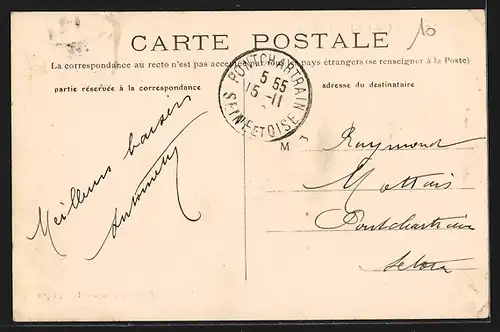 10
CARTE POSTALE
La correspondance au recto n'est pas acceptée par tous les pays étrangers (se renseigner à la Poste)
partie réservée à la correspondance
adresse du destinataire
PONTCHARTRAIN
5 55
15 -11
SEINE ET OISE
Meilleurs baisers
M
Raymond
Pontchartrain